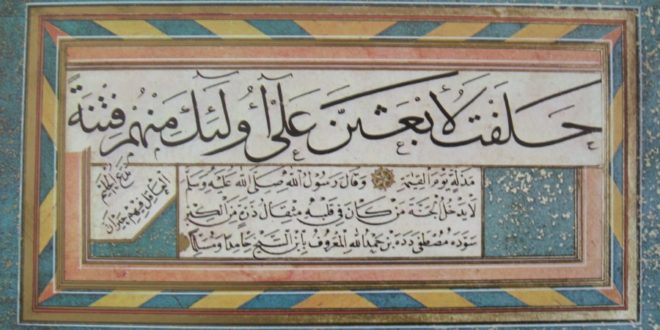 حَلَفْتُ لَأَبْعَثَنَّ عَلَى أُولَئِكَ مِنْهُمْ فِتْنَةً
تدع الحليم
فيهم حيران
مذلة يوم القيمة وقال رسول الله صلى الله عليه وسلم
لا يدخل الجنة من كان في قلبه مثقال ذرة من الكبر
سوده مصطفى دده بن حمد الله المعروف بابن الشيخ حامدا